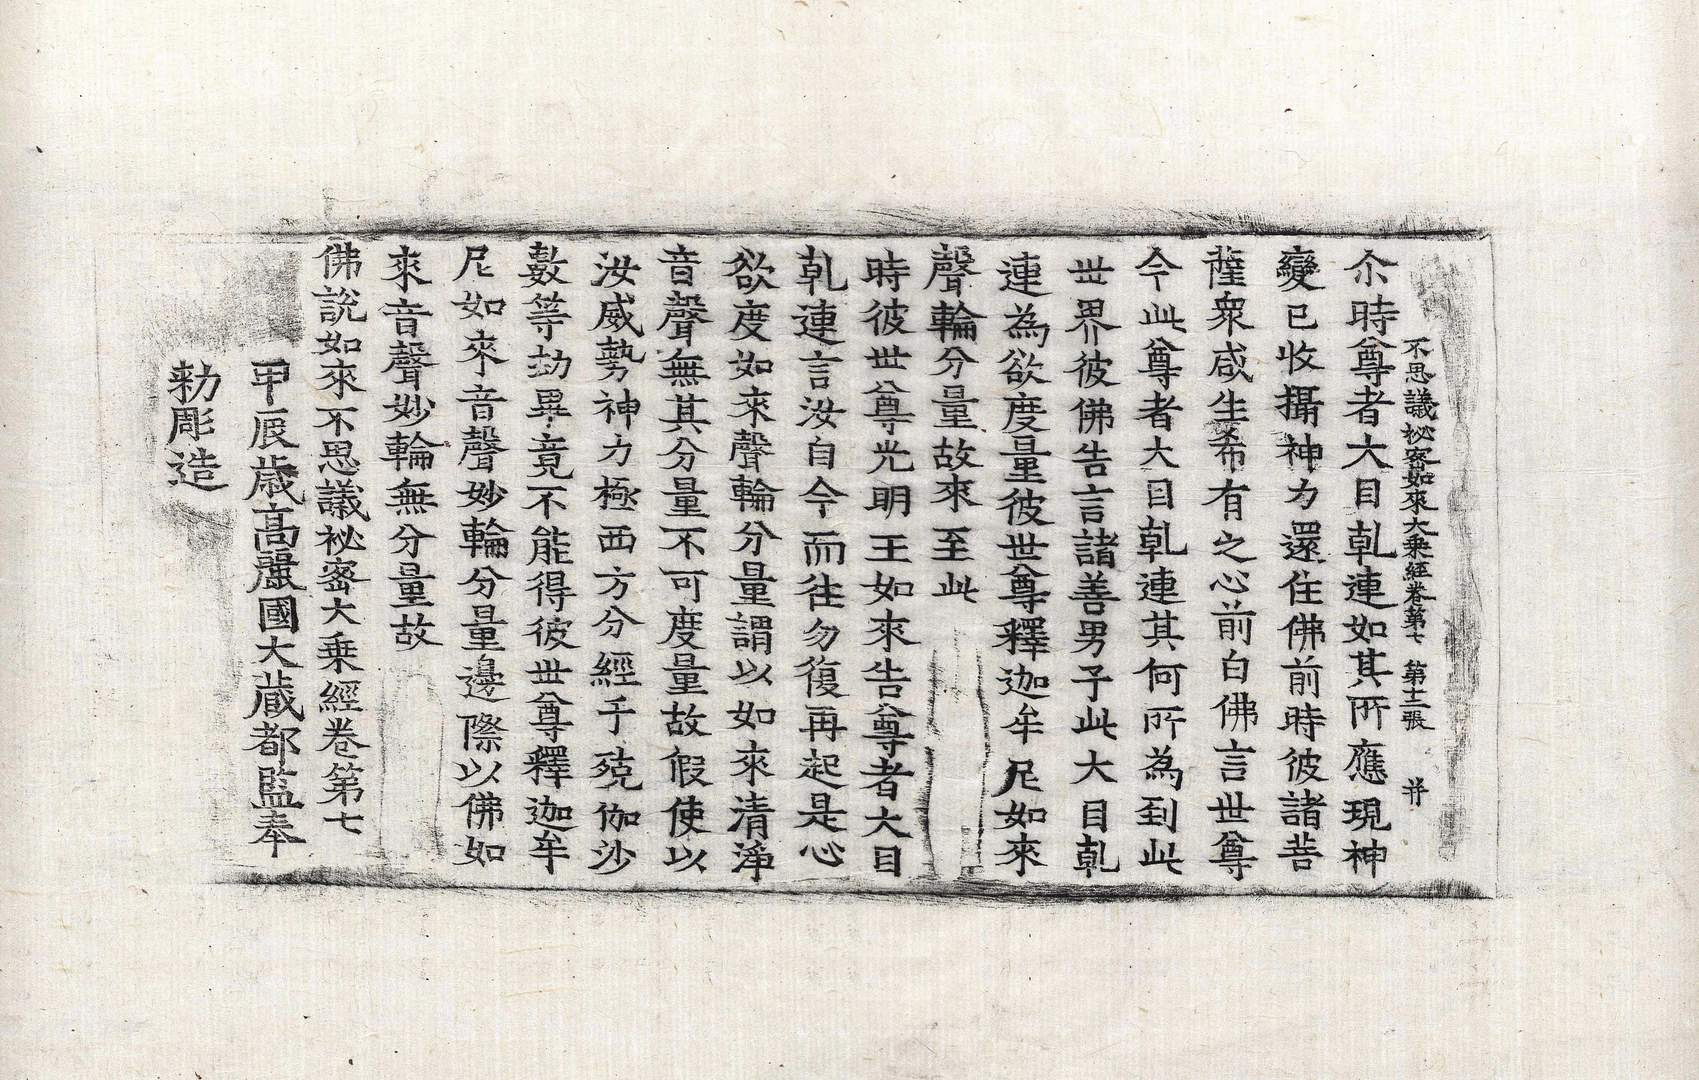 不思議祕密如來大乘經卷第七 第十二張 幷
尒時尊者大目乹連如其所應現神
變已收攝神力還住佛前時彼諸菩
薩衆咸生希有之心前白佛言世尊
今此尊者大目乹連其何所為到此
世界彼佛告言諸善男子此大目乹
連為欲度量彼世尊釋迦牟尼如來
聲輪分量故來至此
時彼世尊光明王如來告尊者大目
乹連言汝自今而往勿復再起是心
欲度如來聲輪分量謂以如來清淨
音聲無其分量不可度量故假使以
汝威勢神力極西方分經于殑伽沙
數等劫畢竟不能得彼世尊釋迦牟
尼如來音聲妙輪分量邊際以佛如
來音聲妙輪無分量故
佛說如來不思議祕密大乘經卷第七
甲辰歲高麗國大藏都監奉
勑彫造